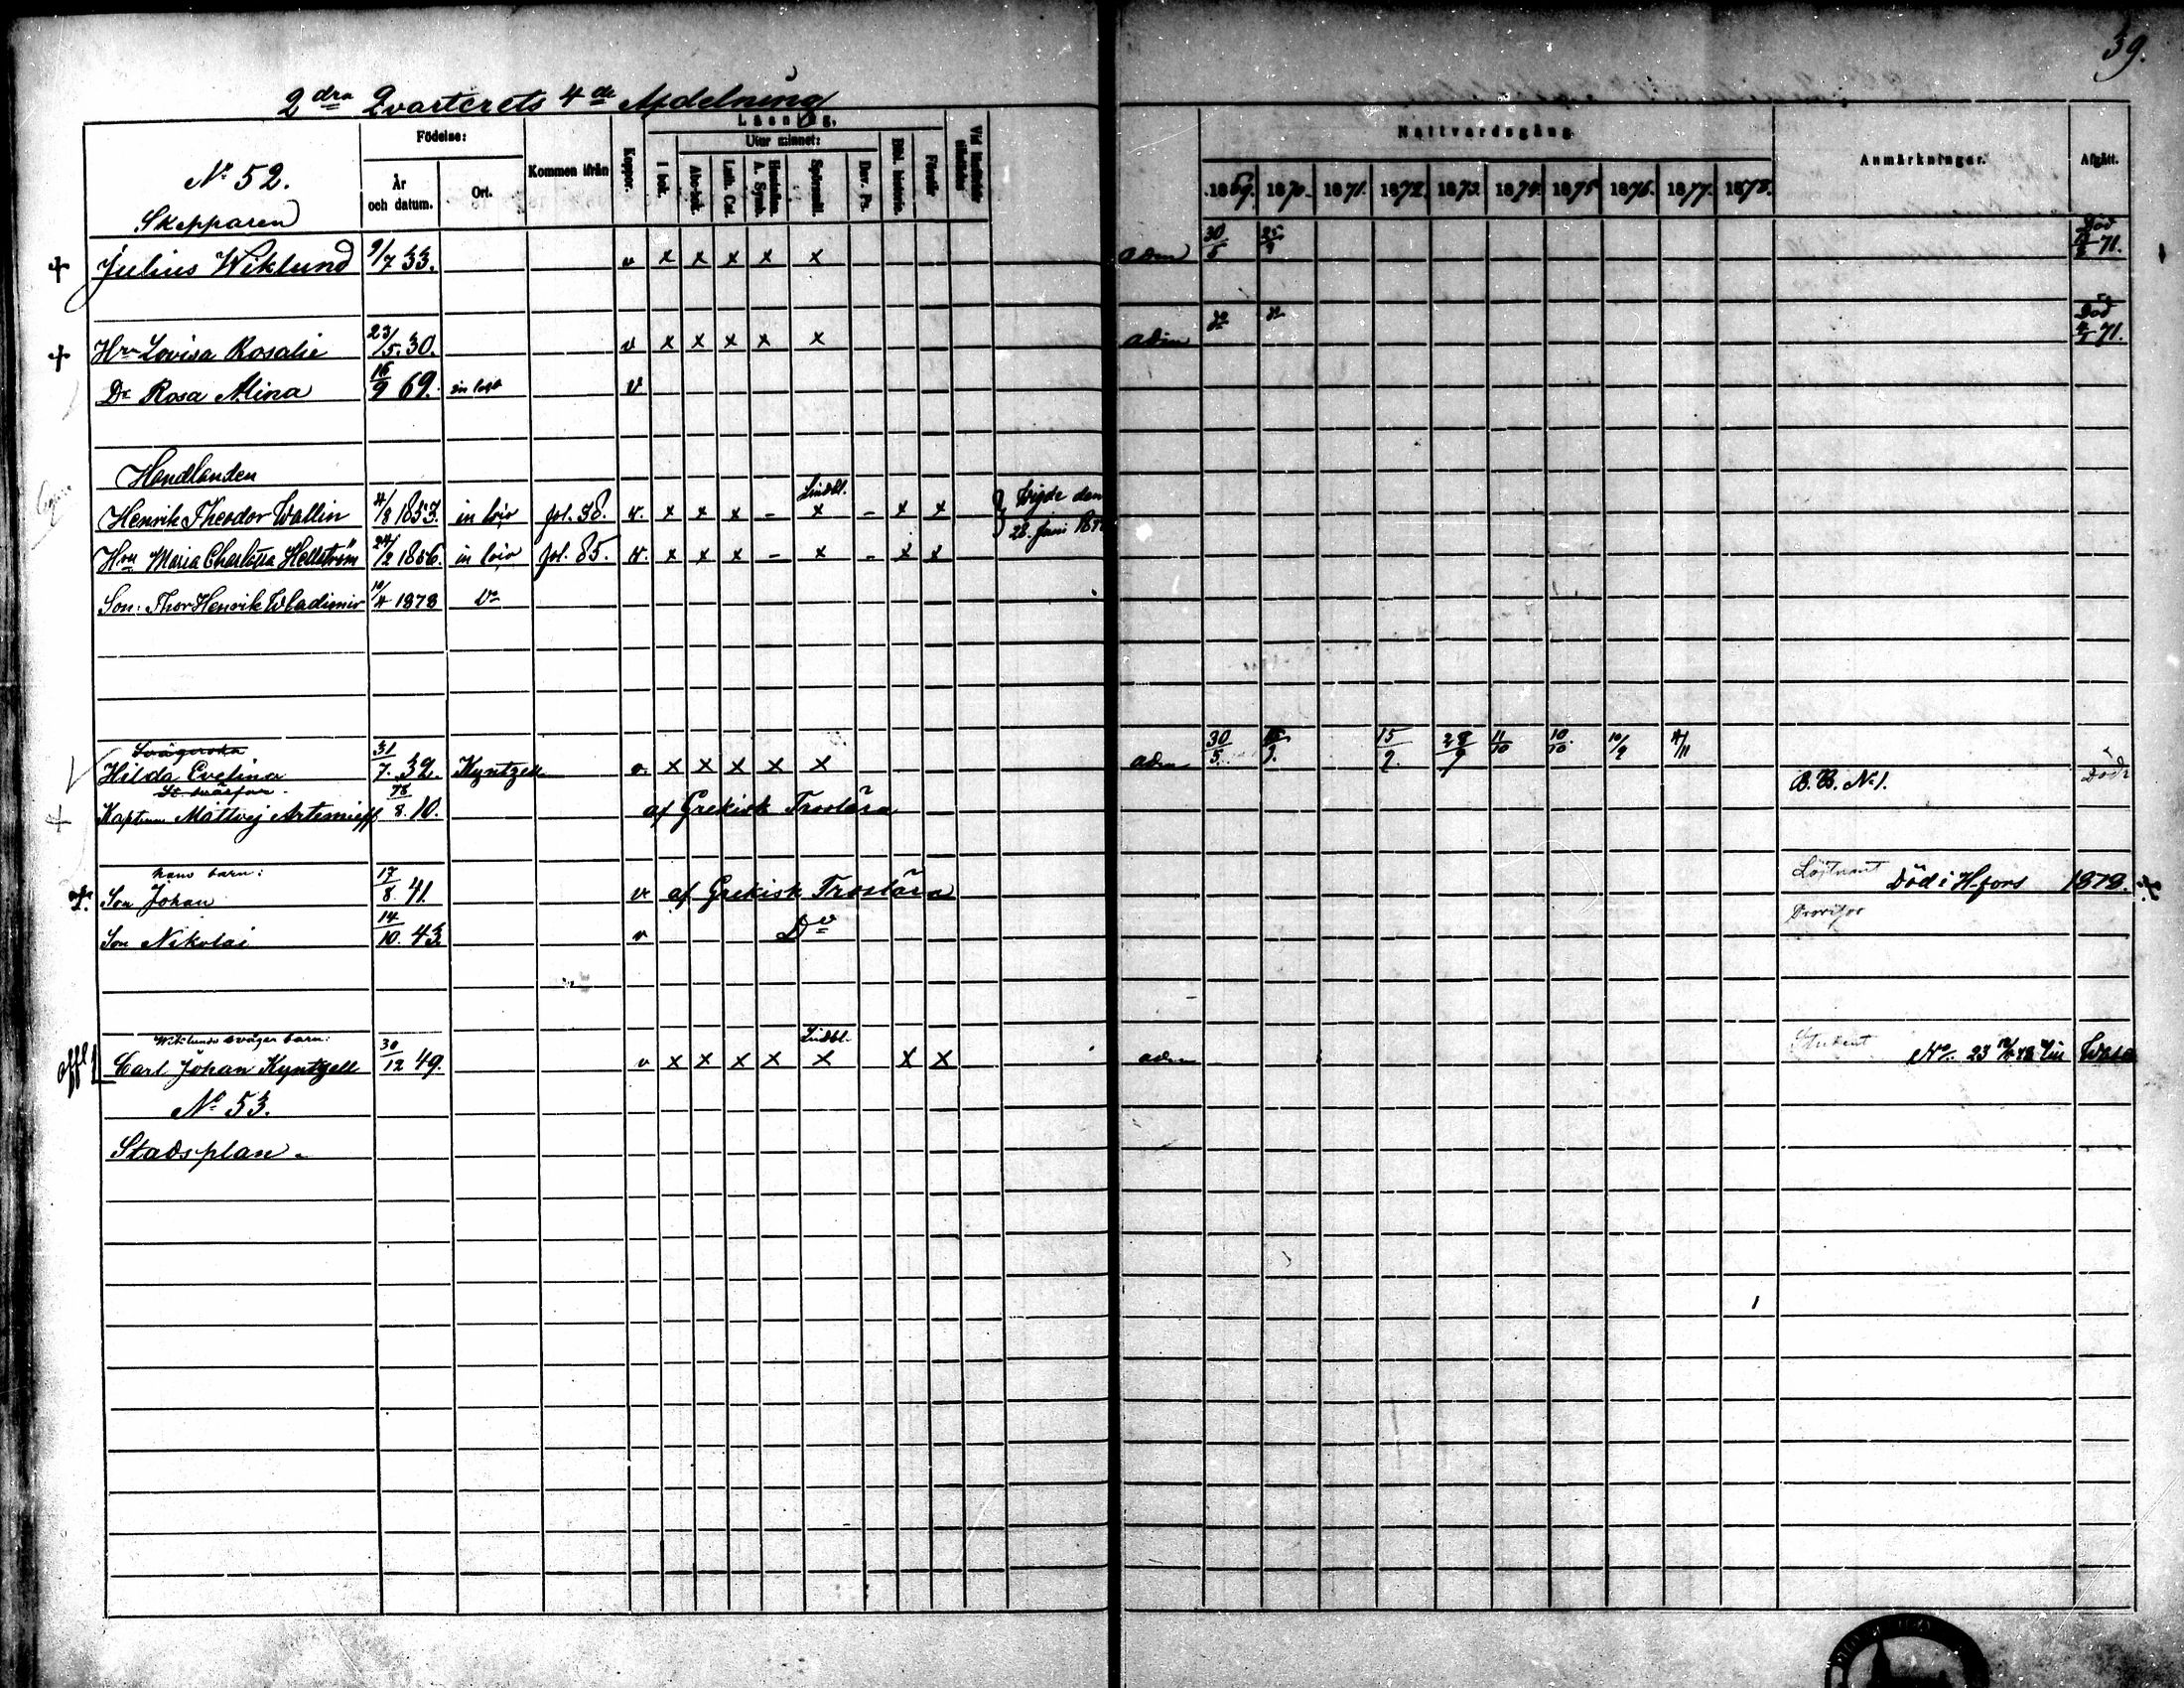 39.
2dra Qvarterets 4de Afdelning
Födelse: Läsning. Nattvardsgång.
No 52. År och datum. Ort. Kommen ifrån Koppor. I bok. Utur minnet: Abc-bok. Luth. Cat. Hustaflan. A. Symb. Spörsmål. Dav. Ps. Bibl. historie. Förstår 1869. 1870. 1871. 1872. 1873. 1874. 1875. 1876. 1877. 1878. Anmärkningar. Afgått.
Skepparen
Julius Wiklund 9/7 33. v x x x x x adm 30/5 25/9 Död 71.
Hru Lovisa Rosalie 23/5 30. v x x x x x adm do do Död 71.
Dr Rosa Alina 16/9 69. v
Handlanden
Henrik Theodor Wallin 4/8 1853. in loco fol. 38. v. x x x – Lindbl. x – x x Vigde den 28. Juni
Hru Maria Charlotta Hellström 24/2 1856. in loco fol. 85. v. x x x – x – x x
Son: Thor Henrik Wladimir 10/4 1878 Do
Svägerska
Hilda Evelina 31/7. 32. Kyntzell v. x x x x x adm 30/5. 15/9. 15/9. 28/9 11/10 10/10. 10/9 4/11 B. B. No 1.
Kaptenen Mattvej Artemieff 8. 10. af Grekisk Troslära
hans barn:
Son Johan 17/8. 41. v af Grekisk Troslära Löjtnant Död i H-fors 1878.
Son Nikolai 14/10. 43 v Do Provisor
Wiklunds svåger barn:
Carl Johan Kyntzell 30/12 49. v x x x x Lindbl. x x x adm Student No. 23 till Wasa
No 53.
Stadsplan.